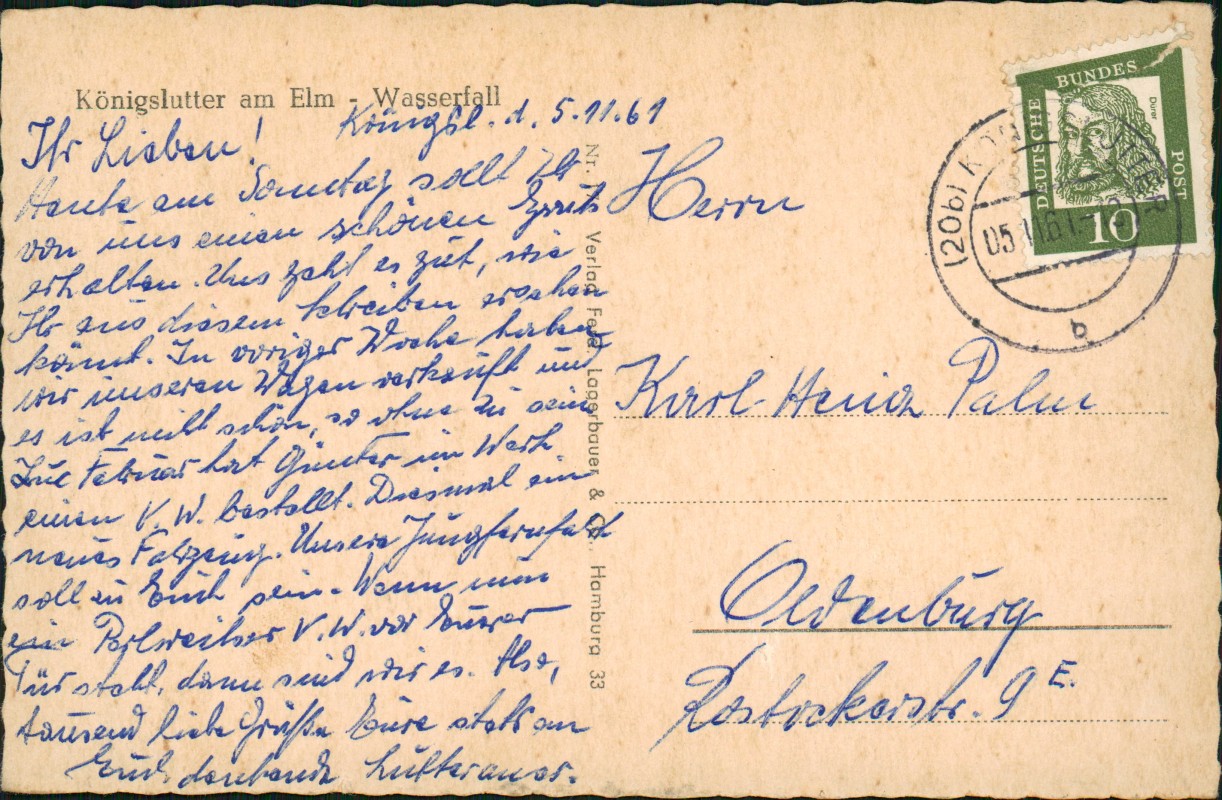 Königslutter am Elm - Wasserfall
Königsl. d. 5.11.61
Ihr Lieben!
Heute am Sonntag sollt Ihr
von uns einen schönen Gruß
erhalten. Uns geht es gut, wie
Ihr aus diesem Schreiben ersehen
könnt. In voriger Woche haben
wir unseren Wagen verkauft und
es ist nicht schön, so ohne zu sein.
Februar hat Günter im Werk
einen V. W. bestellt. Diesmal ein
neues Fahrzeug. Unsere Jungfernfahrt
soll zu Euch sein. Wenn nun
ein Perlweißer V. W. vor Eurer
Tür steht, dann sind wir es. Also,
tausend liebe Grüße Eure stets an
Euch denkende Lutteraner.
Nr. Verlag Ferd. Lagerbauer & Co., Hamburg 33
DEUTSCHE BUNDES POST
Dürer
10
(20b) KÖNIGSLUTTER
05.11.61
b
Herrn
Karl-Heinz Palm
Oldenburg
Rostockerstr. 9 E.